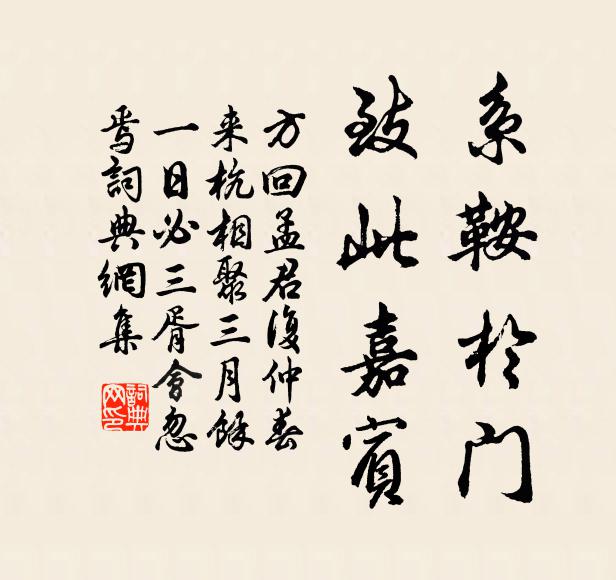 系鞍於門
致此嘉賓
方回孟君復仲春
来杭相聚三月餘
一日必三胥會忽
焉詞典網集
詞典
网印